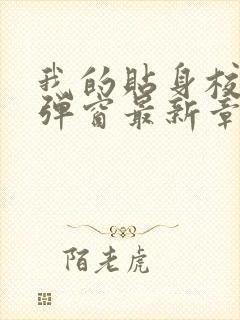 我的贴身校
弹窗最新章
陌老虎